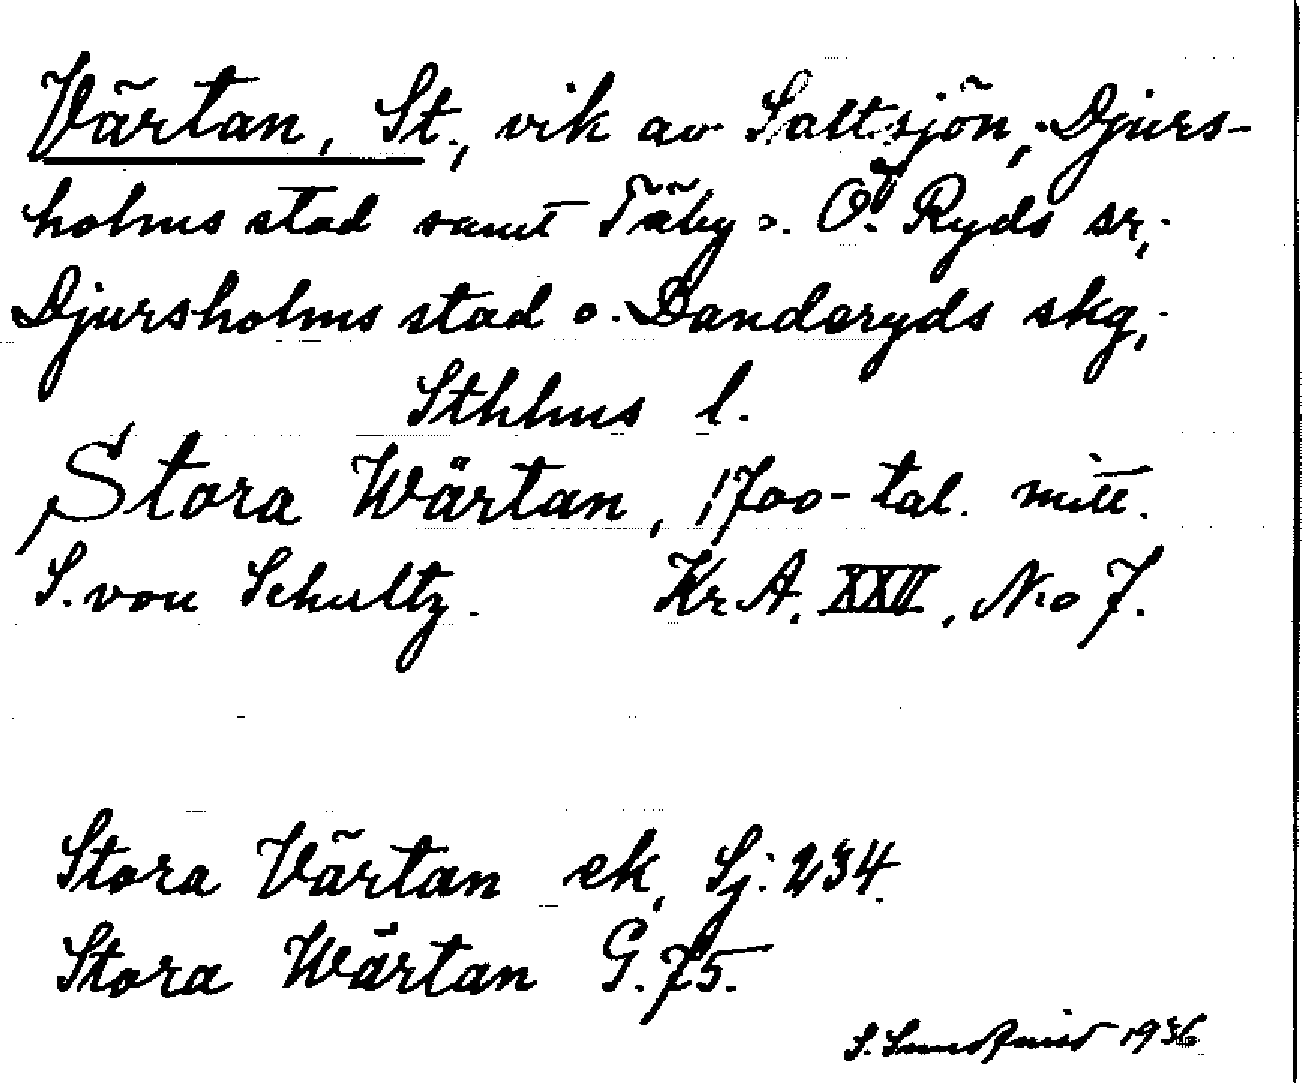 Värtan, St., vik av Saltsjön, Djurs-
holms stad samt Täby o. Ö. Ryds sr,
Djursholms stad o. Danderyds skg,
Sthlms l.
Stora Wärtan, 1700-tal. mitt.
S. von Schultz. Kr A. XXII, No 7.
Stora Värtan ek, Sj: 234.
Stora Wärtan G. 75.
S. 1936